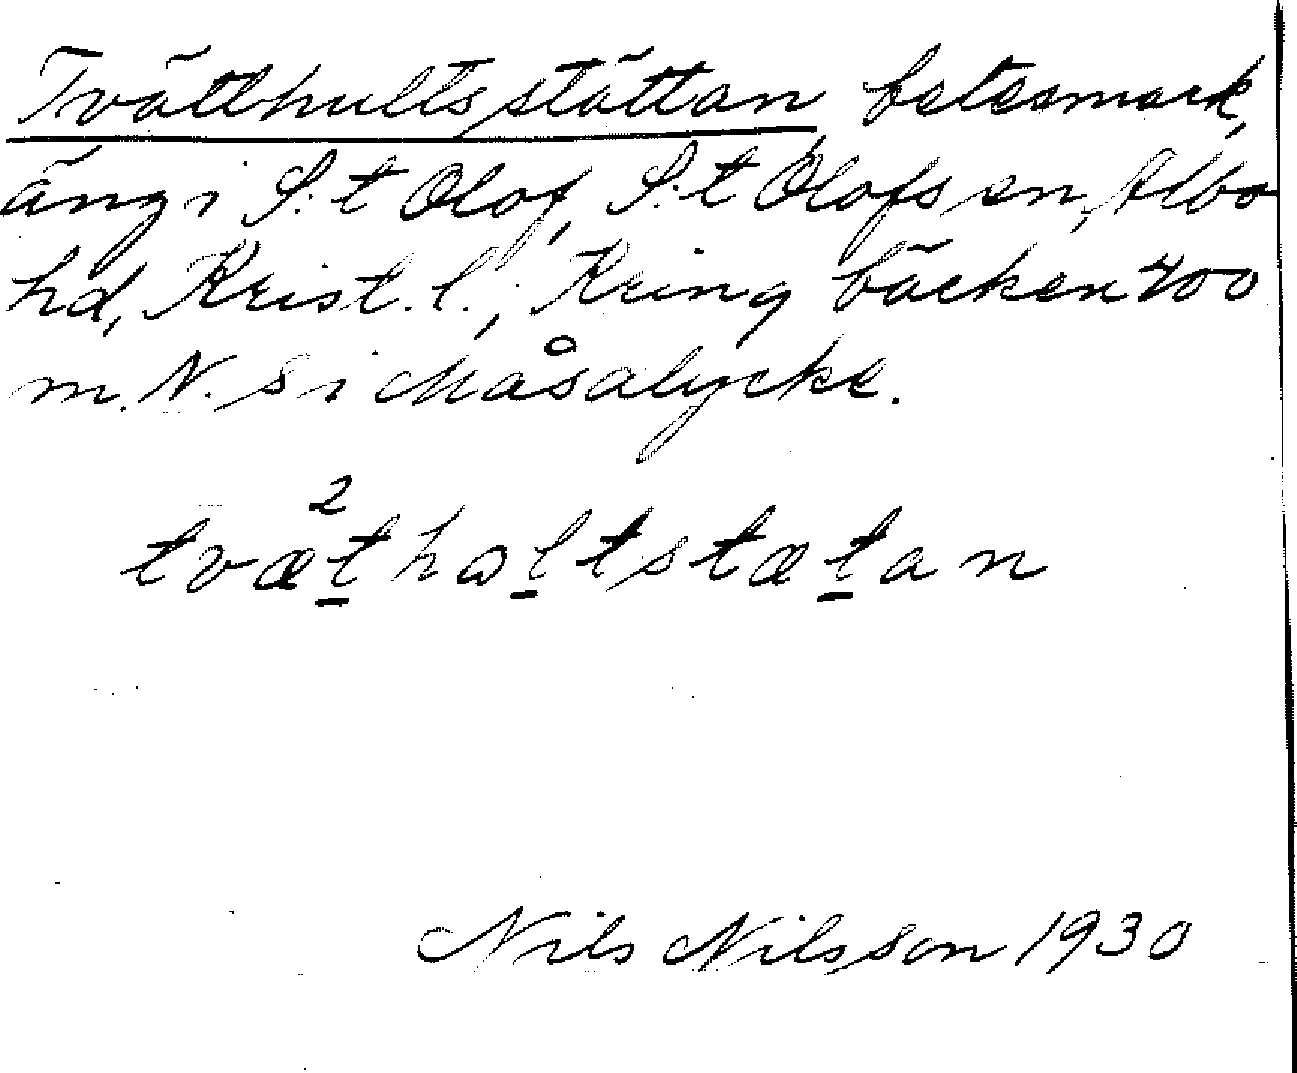 Tvätthultsstättan betesmark,
äng i S:t Olof, S:t Olofs sn, Albo
hd, Krist. l.; Kring bäcken 400
m. N. s i Måsalycke.
2
tvæt̲hɷl̲tstæt̲an
Nils Nilsson 1930